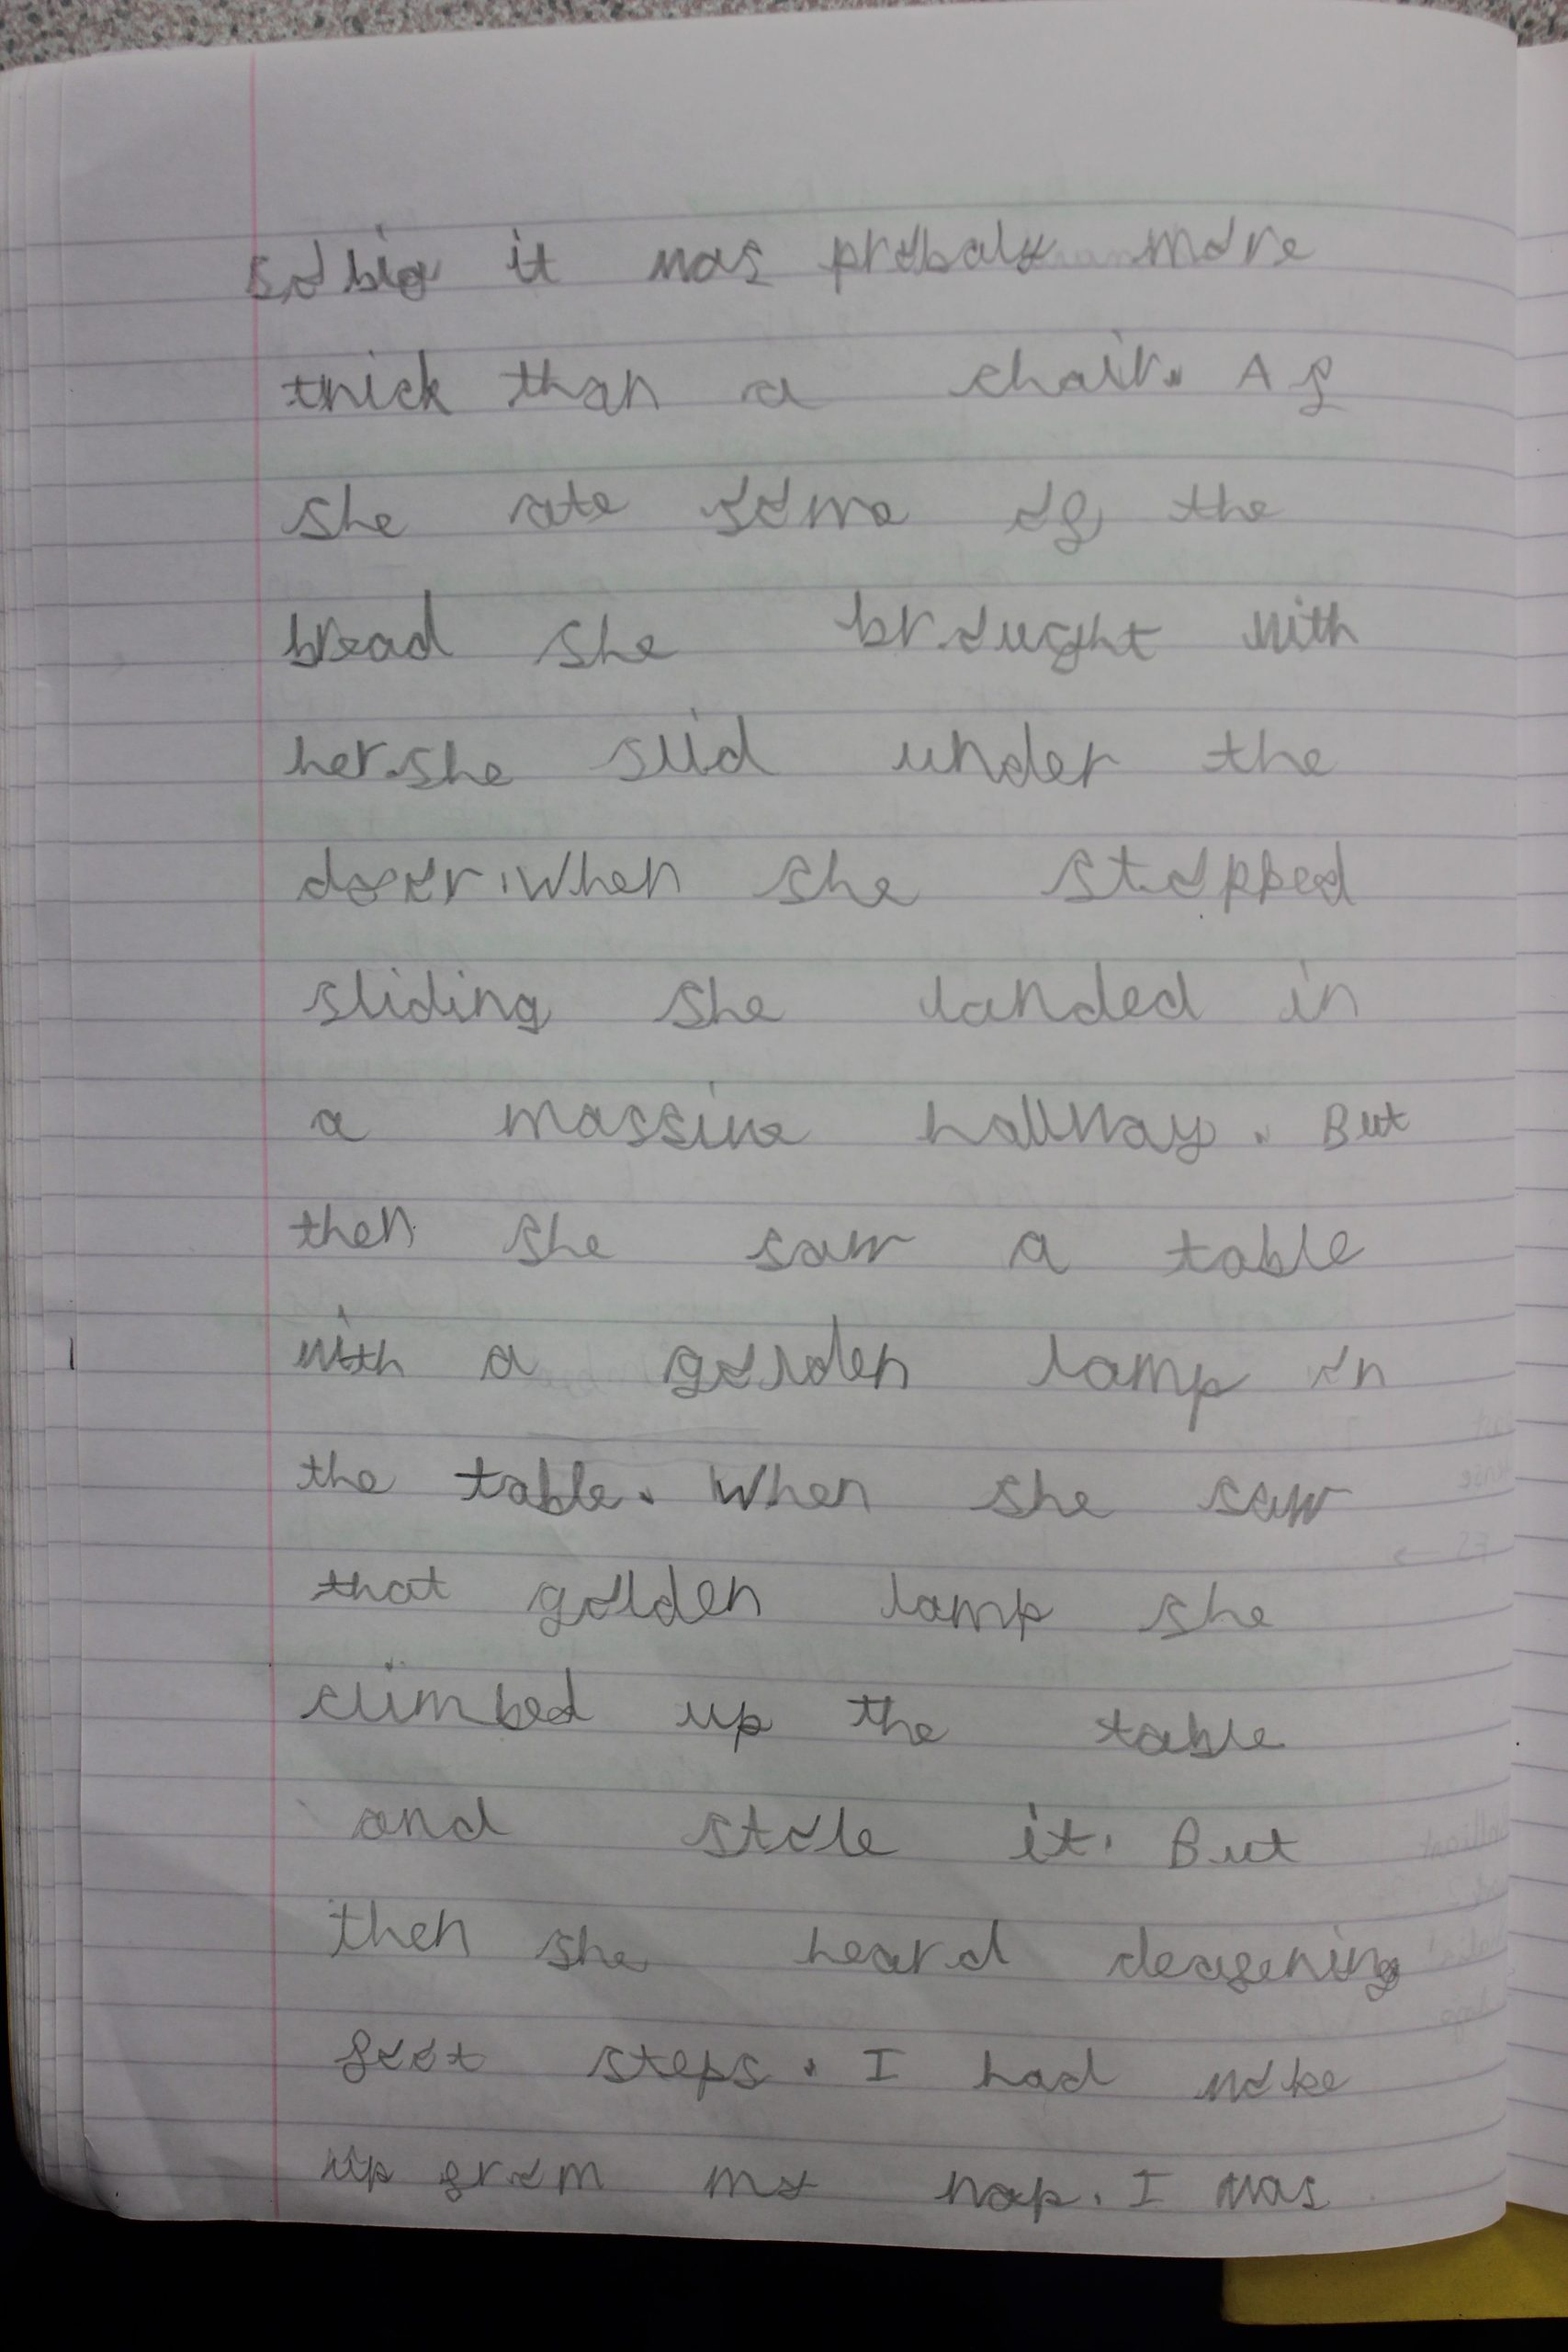 so big it was probaly more
thick than a chair. As
she ate some of the
bread she brought with
her.she slid under the
door.When she stopped
sliding she landed in
a massive hallway. But
then she saw a table
with a golden lamp on
the table. When she saw
that golden lamp she
climbed up the table
and stole it. But
then she heard deafening
foot steps. I had woke
up from my nap. I was